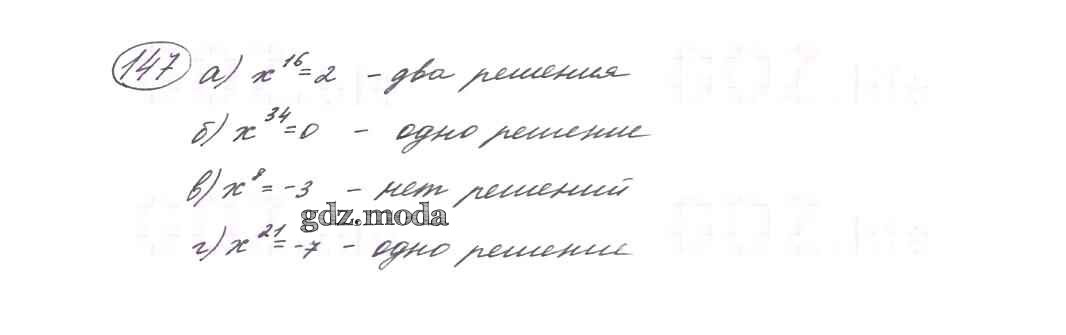 147 а) x^16 = 2 - два решения
б) x^34 = 0 - одно решение
в) x^8 = -3 - нет решений
gdz.moda
г) x^21 = -7 - одно решение